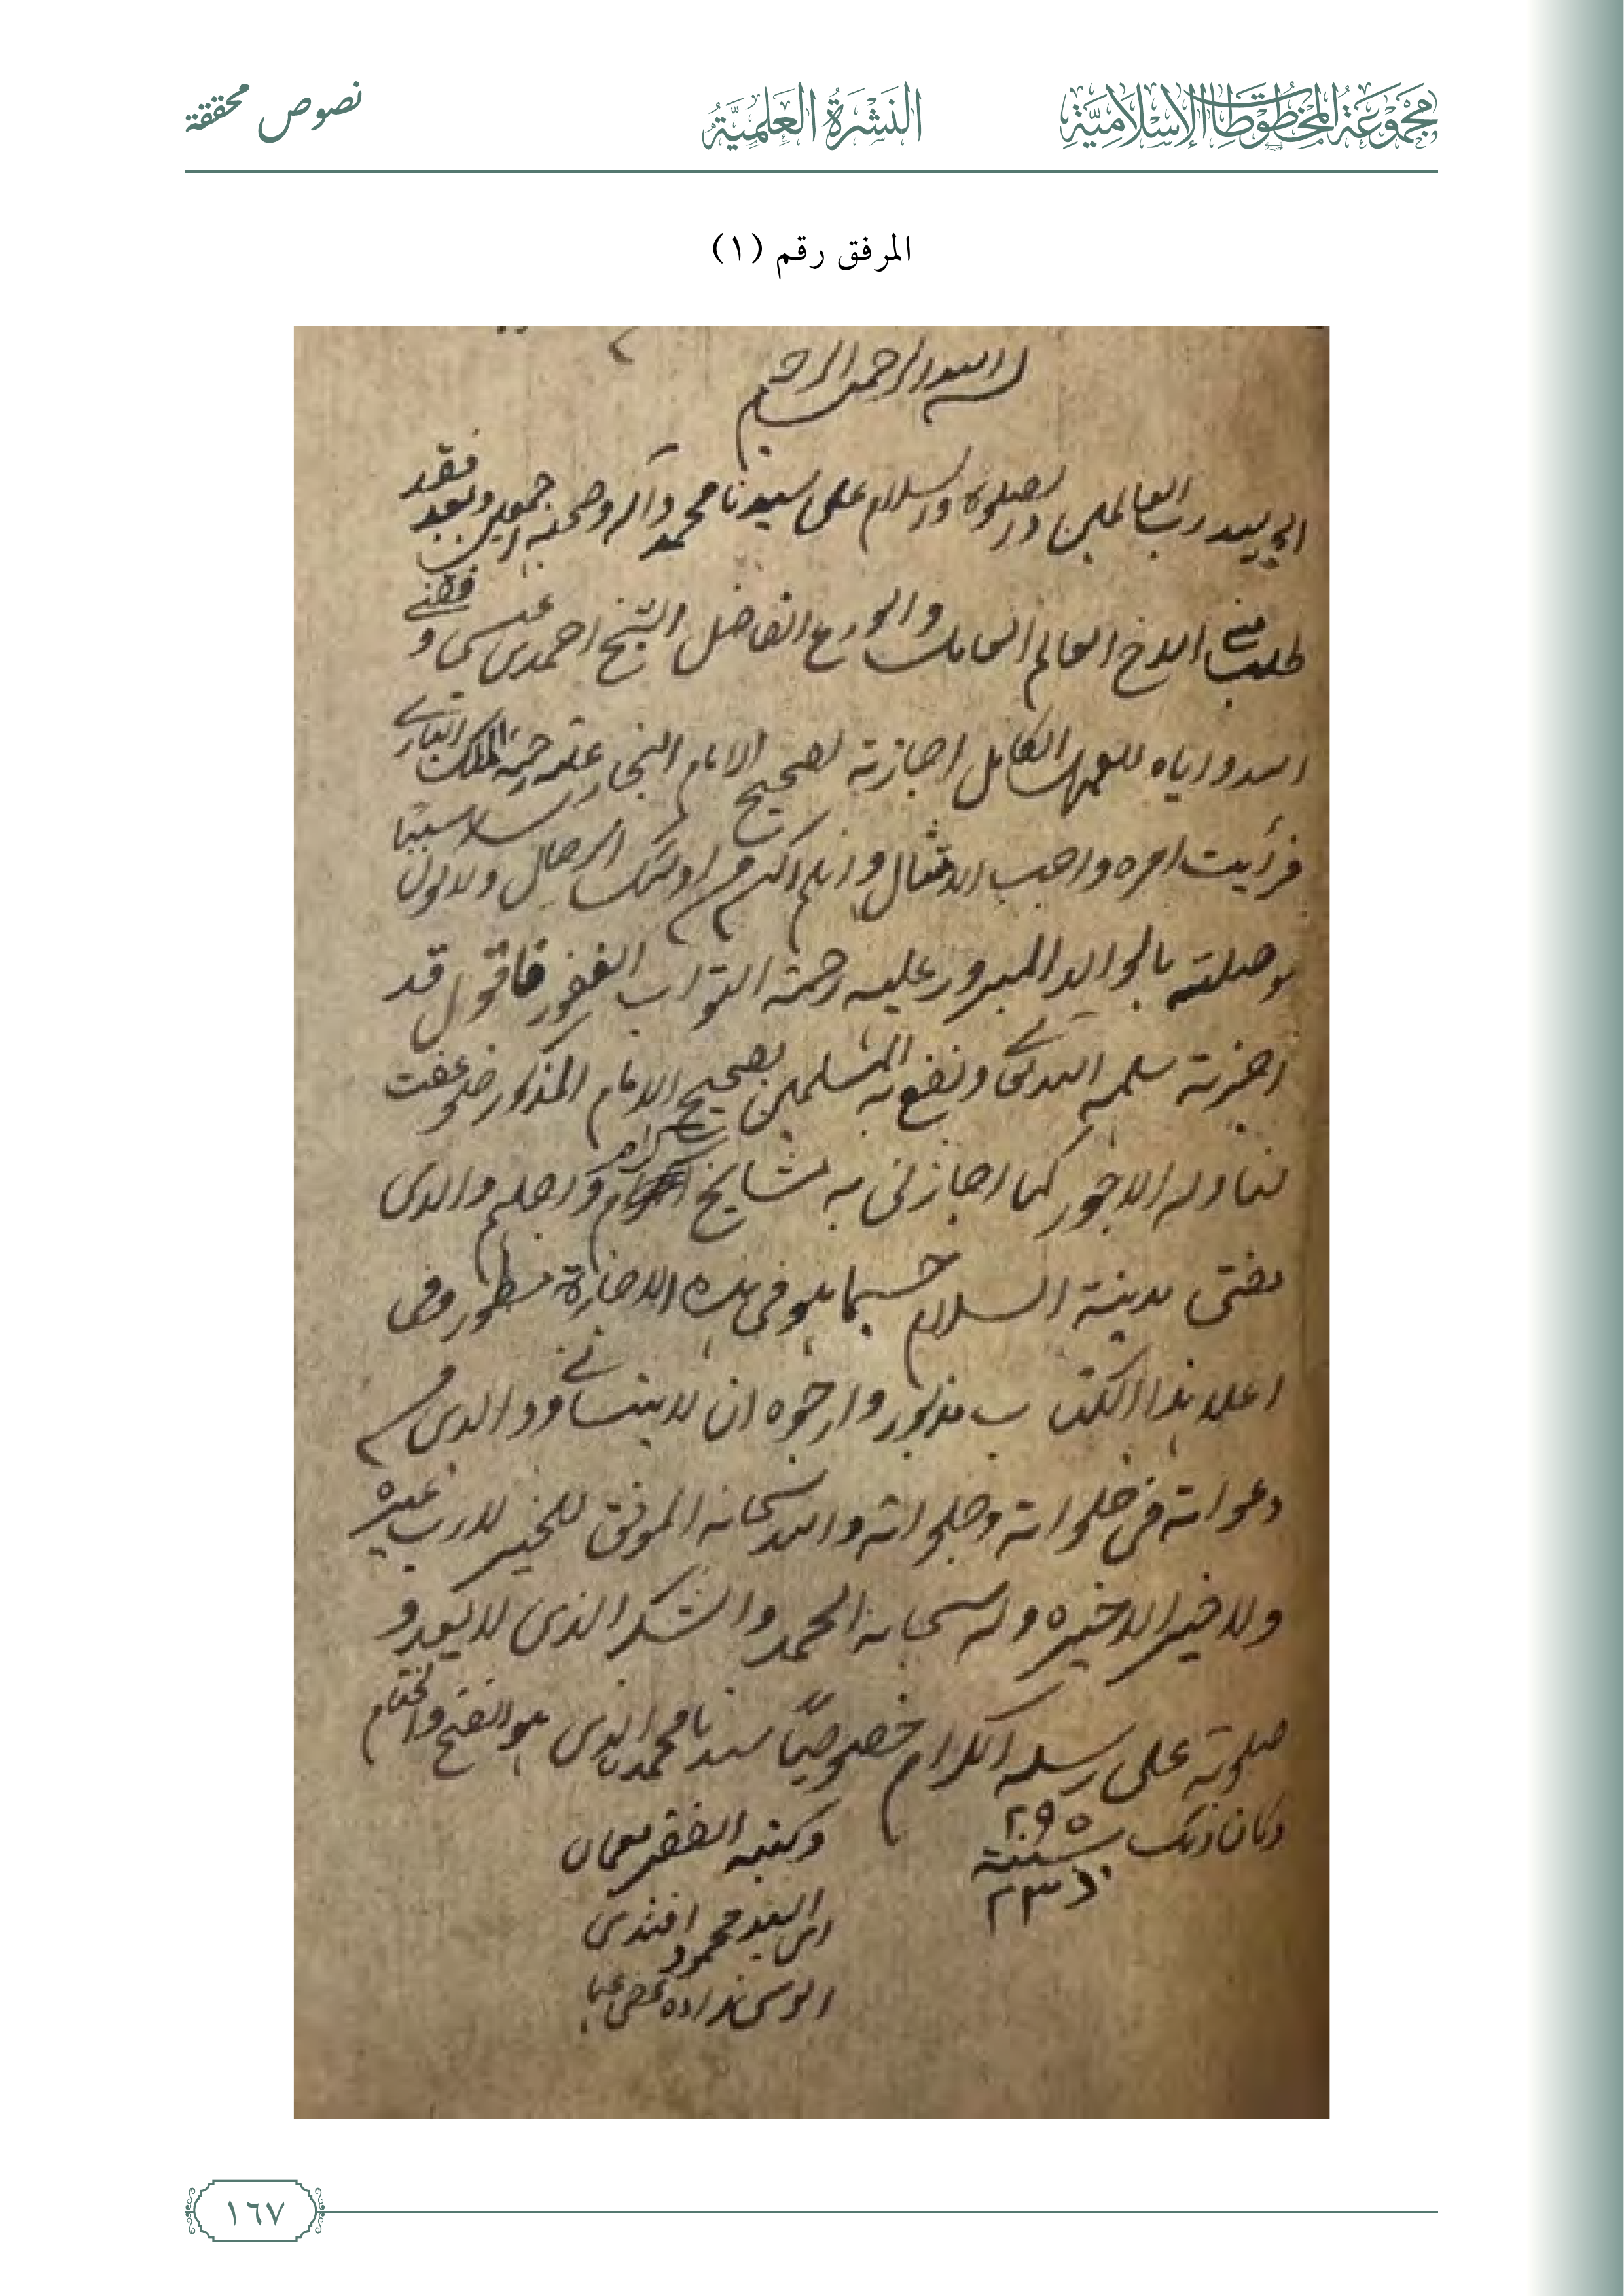 مجموعة المخطوطات الإسلامية
النشرة العلمية
نصوص محققة
المرفق رقم (١)
بسم الله الرحمن الرحيم
الحمد لله رب العالمين والصلوة والسلام على سيدنا محمد وآله وصحبه اجمعين وبعد فقد
طلب مني الاخ العالم العامل والورع الفاضل الشيخ احمد بن عيسى وفقني
الله واياه للعمل الكامل اجازته لصحيح الامام البخاري عليه رحمة الملك الباري
فرأيت امره واجب الامتثال وان لم اكن من اولئك الرجال ولاكون سببا
لوصلته بالوالد المبرور عليه رحمة التواب الغفور فاقول قد
اجزته سلمه الله تعالى ونفع به المسلمين بصحيح الامام المذكور ضوعفت
لنا وله الاجور كما اجازني به مشايخ كرام واجلهم والدي
مفتي مدينة السلام حسبما هو في هذه الاجازة مسطور وفي
اعلا هذا الكتاب مذبور وارجوه ان لا ينساني ووالدي من
دعواته في خلواته وجلواته والله سبحانه الموفق للخير لا رب غيره
ولا خير الا خيره وله سبحانه الحمد والشكر الذي لا يعد و
صلوته على رسله الكرام خصوصيًا سيدنا محمد الذي هو الفتح والختام
وكان ذلك سنة ٢٩٥
وكتبه الفقير نعمان
ابن السيد محمود افندي
الوسي زاده عفي عنهما
١٦٧